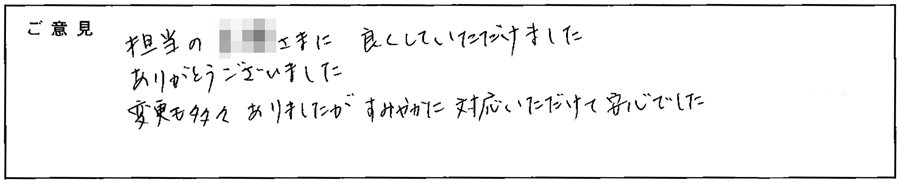 ご意見
担当の さまに 良くしていただけました
ありがとうございました
変更も多々ありましたが すみやかに対応いただけて安心でした